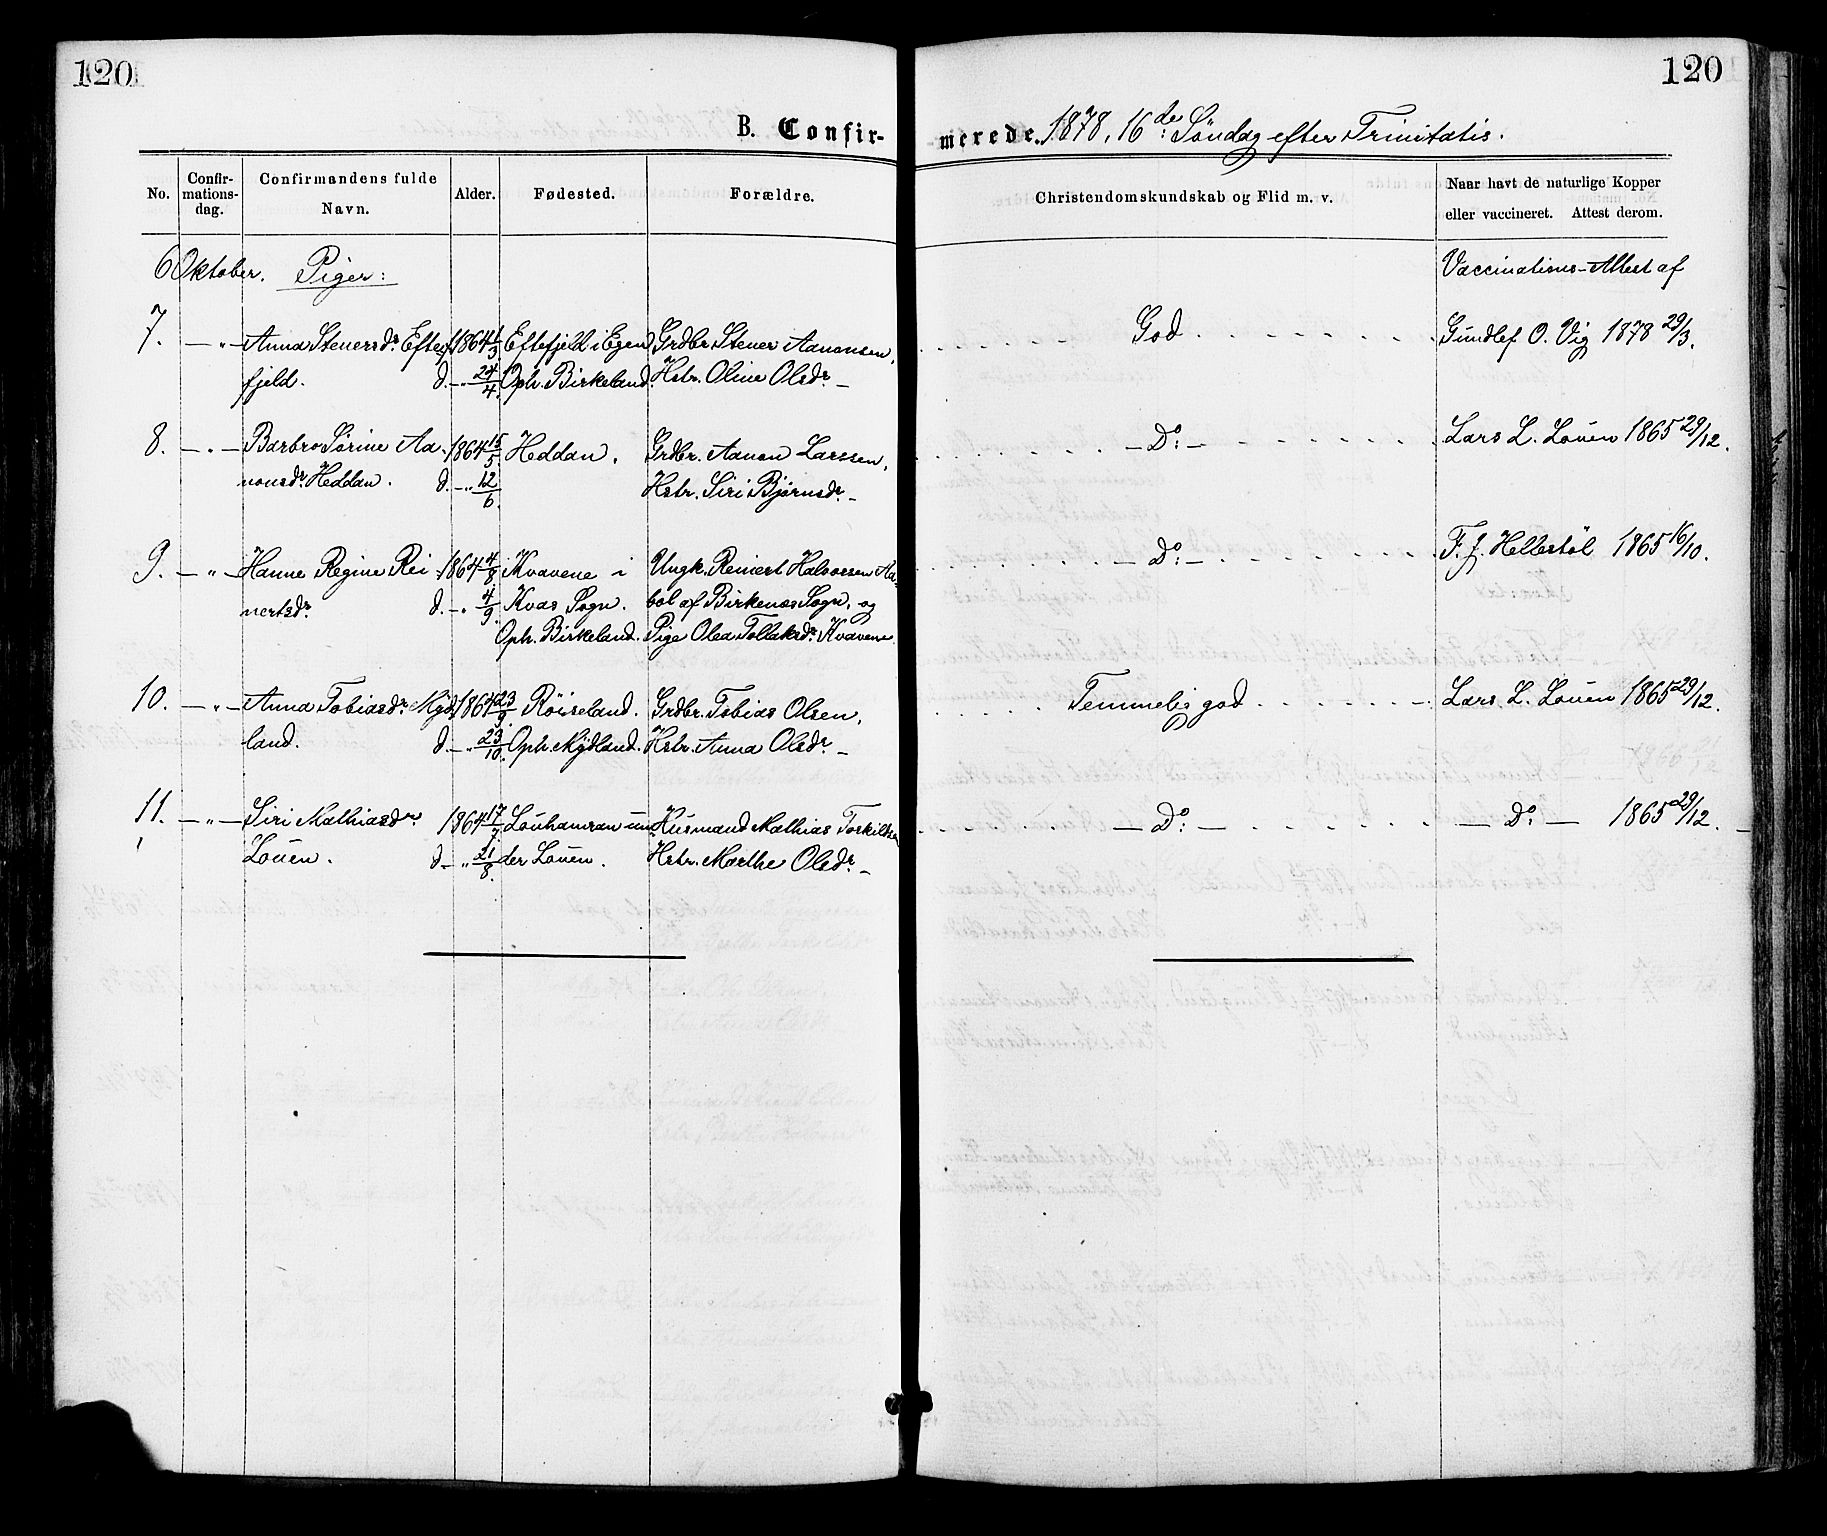 120
120
B. Confir-
merede. 1878, 16de: Søndag efter Trinitatis.
No.
Confir-
mations-
dag.
Confirmandens fulde
Navn.
Alder.
Fødested.
Forældre.
Christendomskundskab og Flid m. v.
Naar havt de naturlige Kopper
eller vaccineret. Attest derom.
6 Oktober. Piger:
Vaccinations-Attest af
7. — " — Anna Stenersdr. Eftef- 1864 1/3 Eftefjeld i Egen Grdbr. Stener Aanonsen, God Gundlef O. Vig 1878 29/3.
fjeld. d. — " 24/4. Oph. Birkeland. Hstr. Oline Olsdr. —
8. — " — Barbro Sørine Aa- 1864 15/5 Heddan. Grdbr. Aanon Larssen, — Do: — Lars L. Louen 1865 29/12.
nonsdr. Heddan. d. — " 12/6. Hstr. Siri Bjørnsdr. —
9. — " — Hanne Regine Rei- 1864 4/8 Kvavene i Ungk. Reinert Halvorsen Aa- — Do: — F. J. Hellestøl 1865 16/10.
nertsdr. d. — " 4/9. Kvas Sogn. bol af Birkenæs Sogn, og
Oph. Birkeland. Pige Olea Tollaksdr. Kvavene
10. — " — Anna Tobiasdr. Myd- 1864 23/9. Röiseland. Grdbr. Tobias Olsen, Temmelig god Lars L. Louen 1865 29/12.
land. d — " 23/10. Oph. Mydland. Hstr. Anna Olsdr. —
11. — " — Siri Mathiasdr. 1864 17/7 Louhamran un- Husmand Mathias Torkilds — Do: — — Do: — 1865 29/12. —
Louen. d — " 21/8. der Louen. Hstr. Marthe Olsdr. —